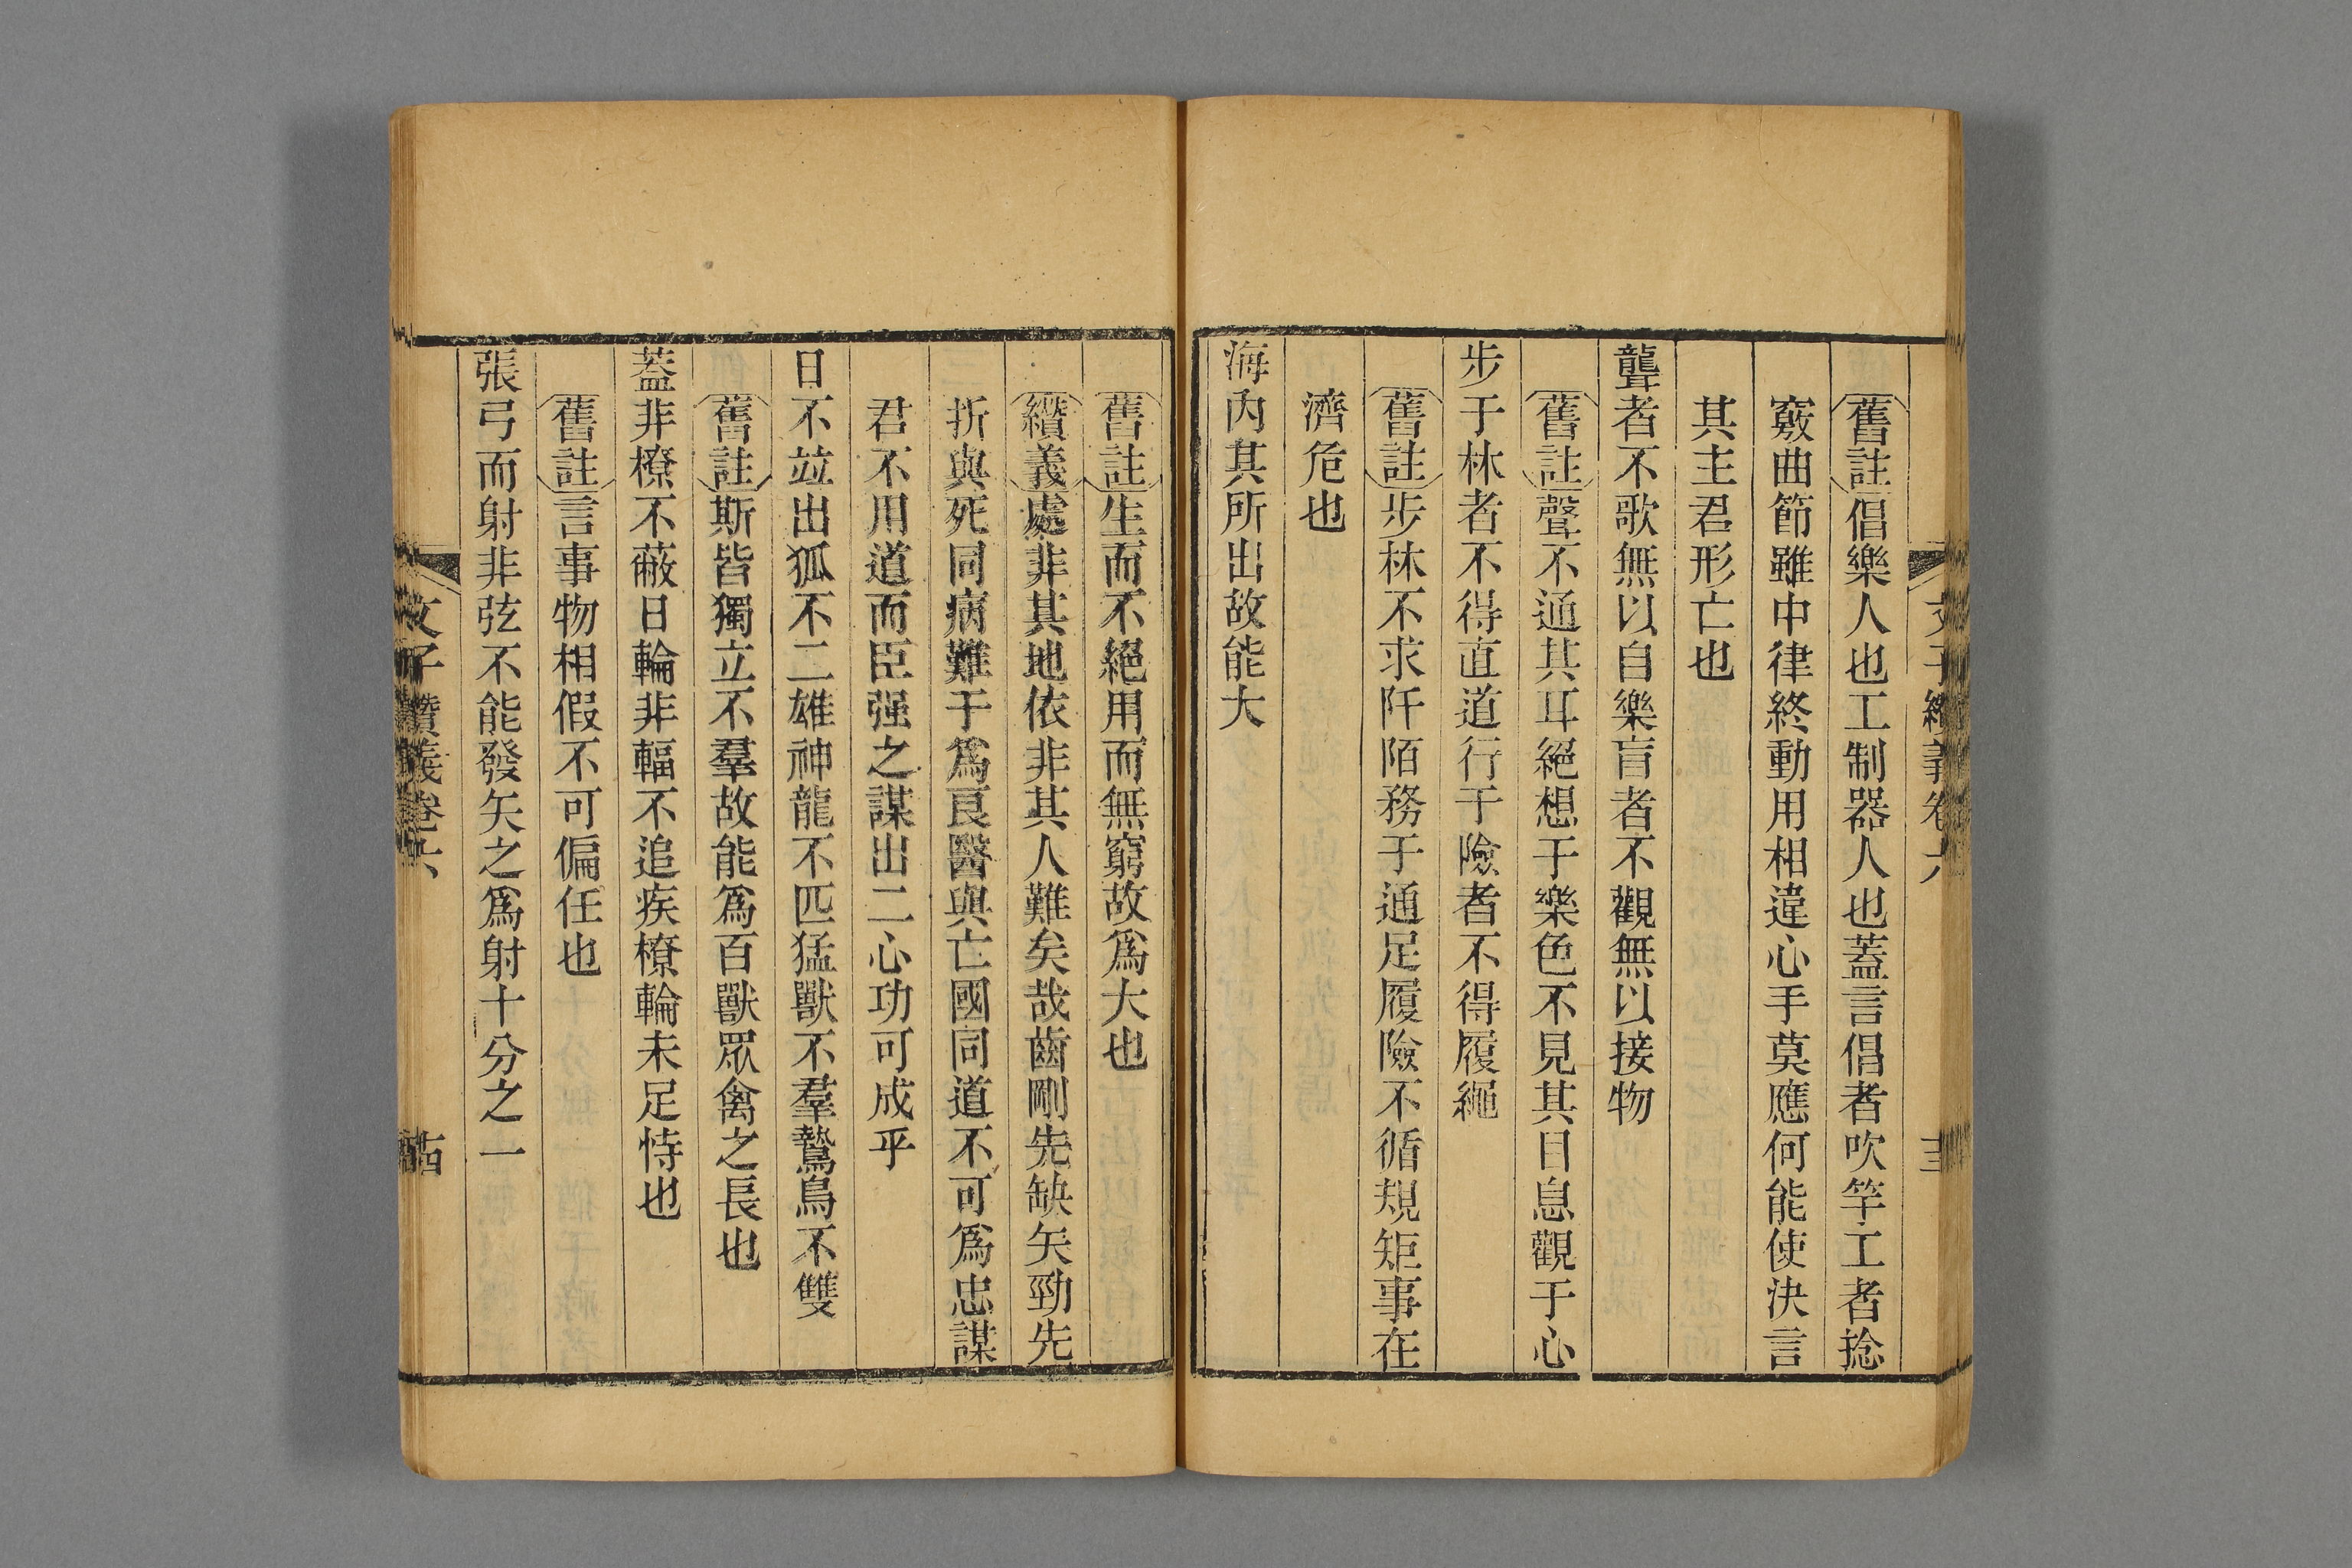 舊註倡樂人也工制器人也蓋言倡者吹竽工者捻
竅曲節雖中律終動用相違心手莫應何能使決言
其主君形亡也
聾者不歌無以自樂盲者不觀無以接物
舊註聲不通其耳絕想于樂色不見其目息觀于心
步于林者不得直道行于險者不得履繩
舊註步林不求阡陌務于通足履險不循規矩事在
濟危也
海內其所出故能大
舊註生而不絕用而無窮故爲大也
纘義處非其地依非其人難矣哉齒剛先缺矢勁先
折與死同病難于爲良醫與亡國同道不可爲忠謀
君不用道而臣强之謀出二心功可成乎
日不竝出狐不二雄神龍不匹猛獸不羣鷙鳥不雙
舊註斯皆獨立不羣故能爲百獸眾禽之長也
蓋非橑不蔽日輪非輻不追疾橑輪未足恃也
舊註言事物相假不可偏任也
張弓而射非弦不能發矢之爲射十分之一
文子纘義卷六